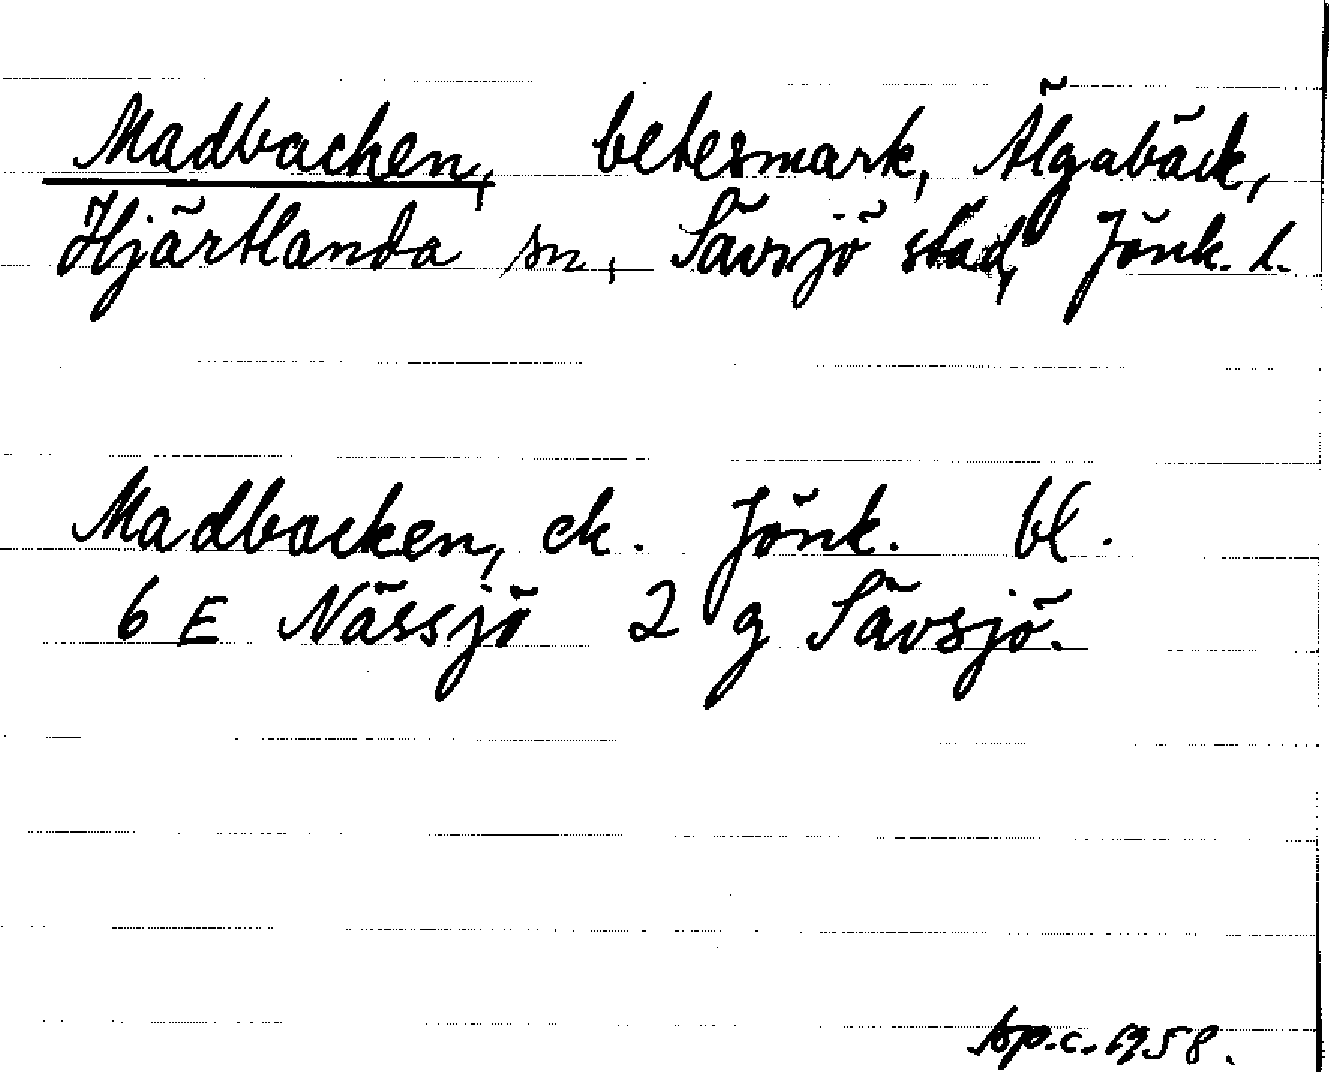 Madbacken, betesmark, Älgabäck,
Hjärtlanda sn, Sävsjö stad, Jönk. l.
Madbacken, ek. Jönk. bl.
6 E Nässjö 2 g Sävsjö.
1958.